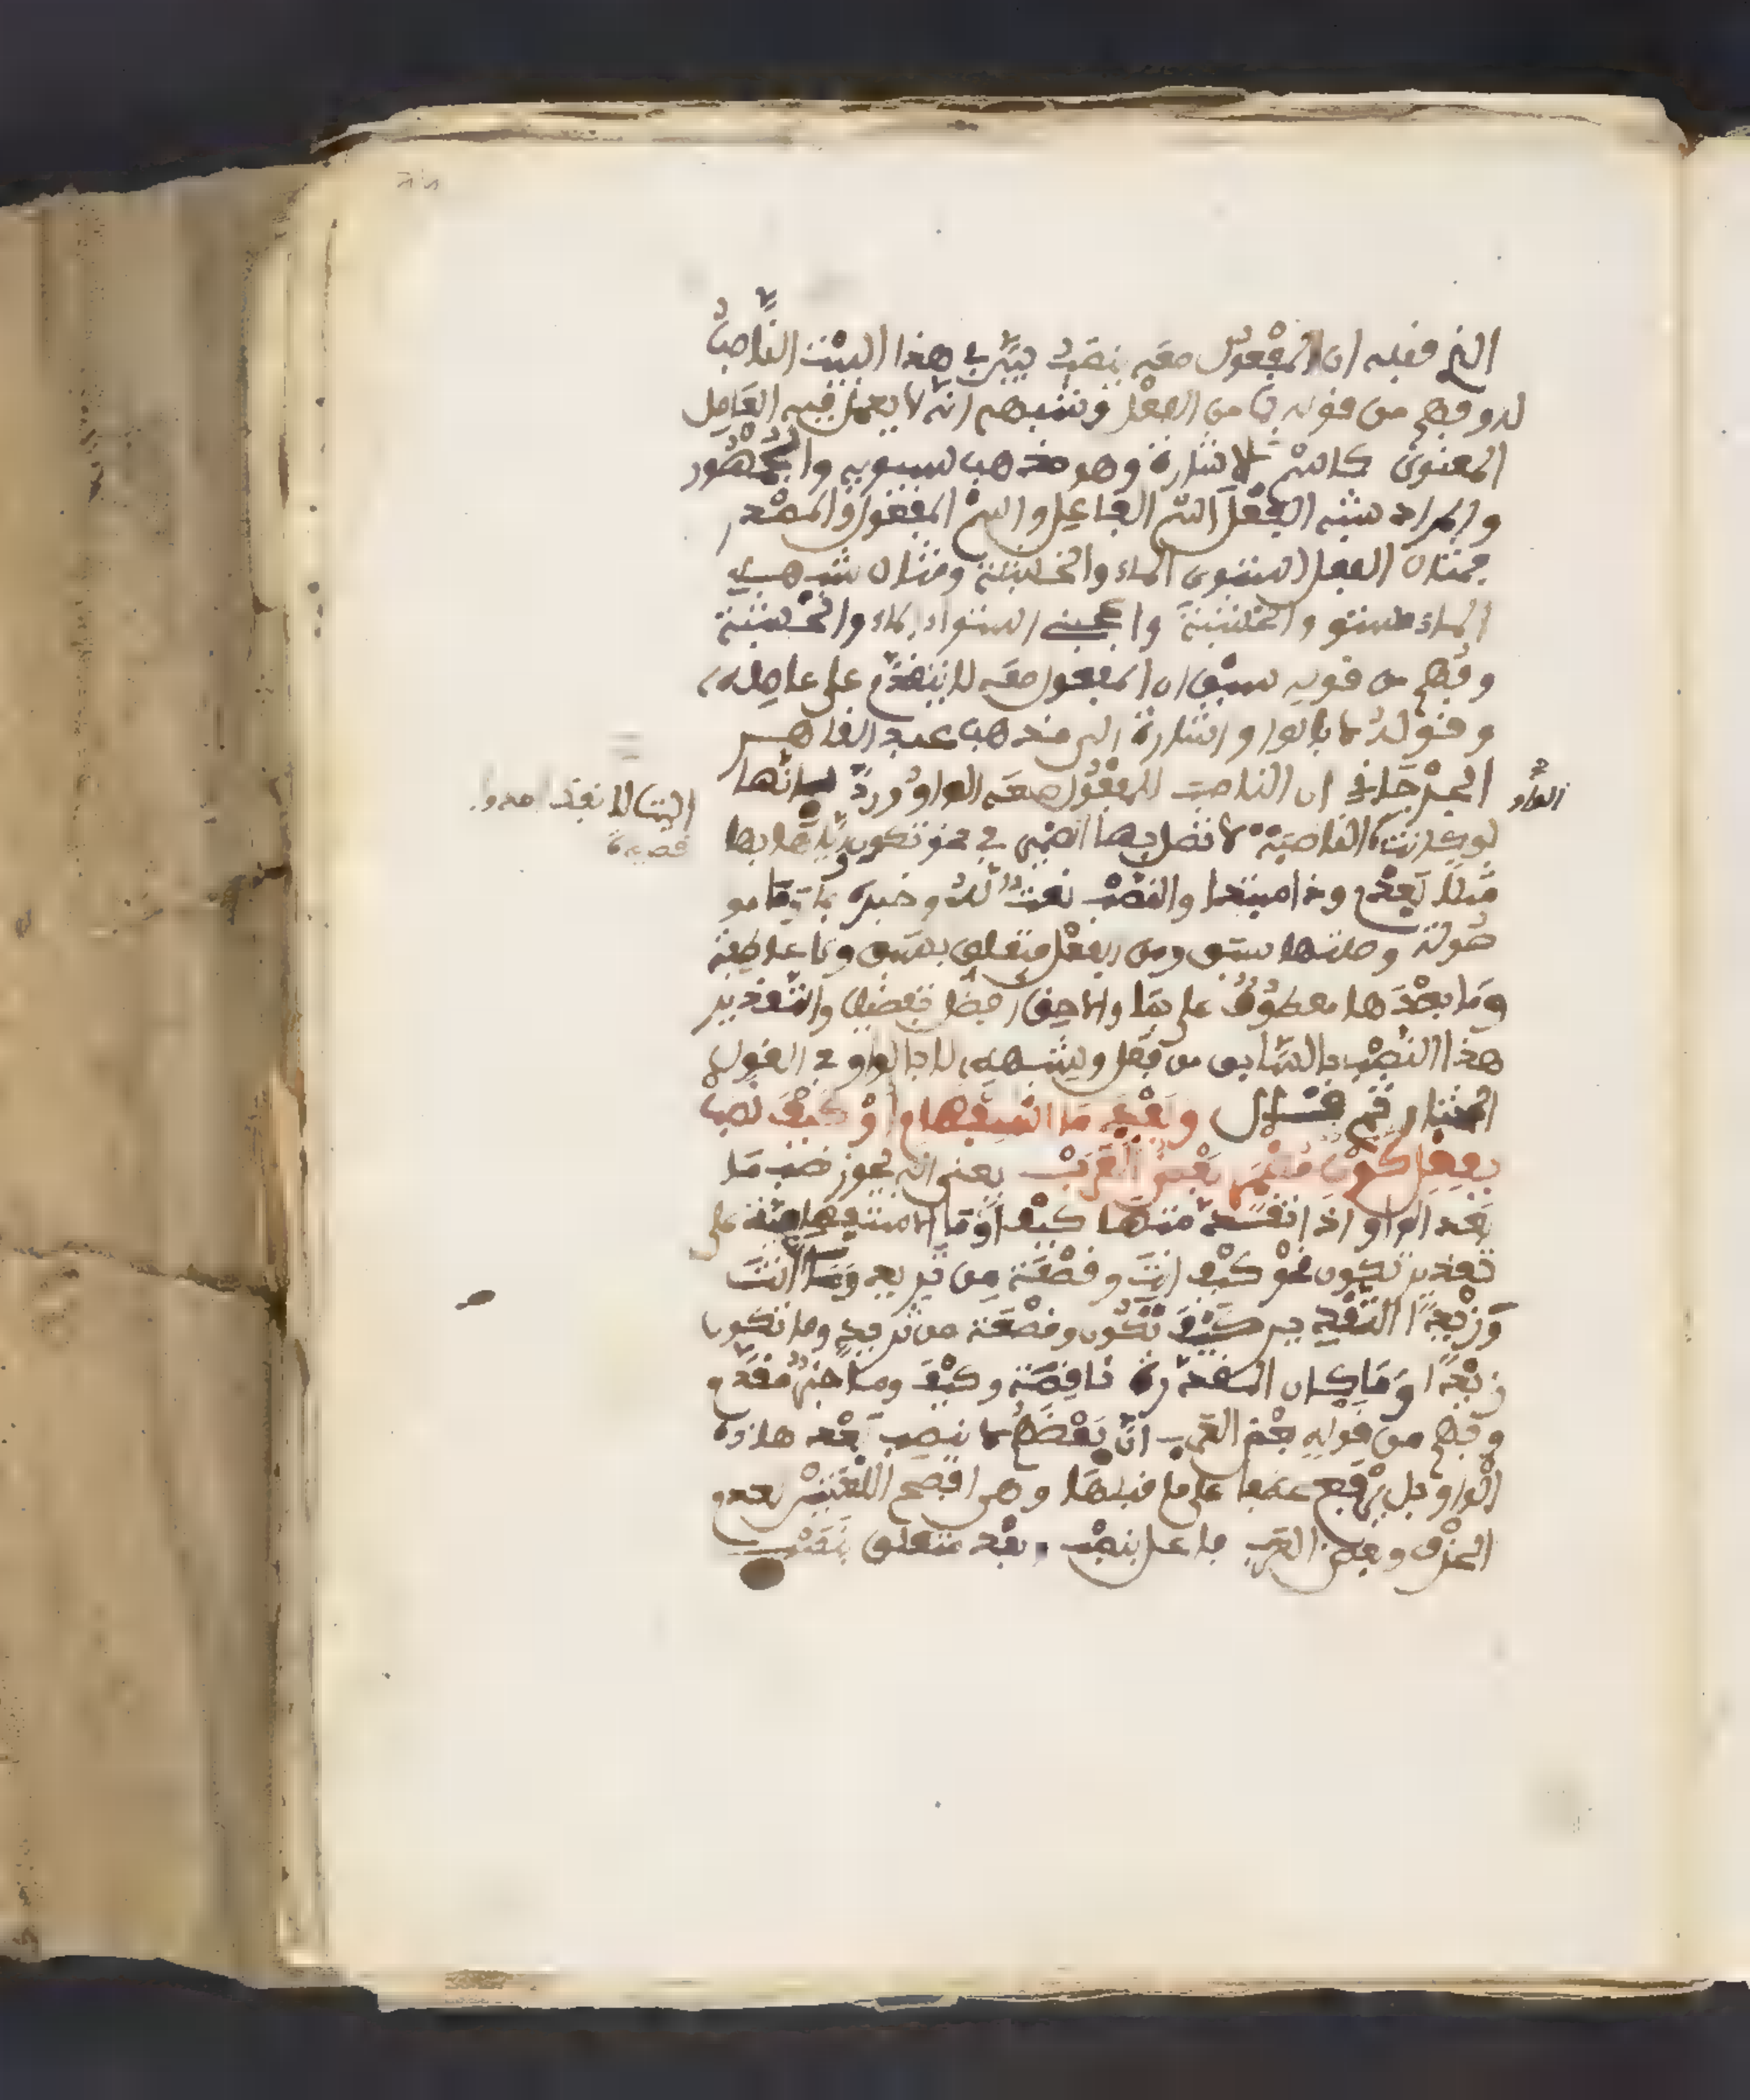 الذي قبله ان المفعول معه ينصب بين في هذا البيت الناصب
له وفهم من قوله بما من الفعل وشبهه انه لا يعمل فيه العامل
المعنوي كاسم الاشارة وهو مذهب سيبويه والجمهور
والمراد بشبه الفعل اسم الفاعل واسم المفعول والمصدر
فمثال الفعل استوى الماء والخشبة ومثال شبهه
الماء مستو والخشبة واعجبني استواء الماء والخشبة
وفهم من قوله سبق ان المفعول معه لا يتقدم على عامله
وقوله لا بالواو اشارة الى مذهب عبد القاهر
الجرجاني ان الناصب للمفعول معه الواو ورد بانها
الواو
لو كانت الناصبة لاتصل بها الضمير في نحو تكون
مثلا بعدي وذا مبتدا والنصب نعت له وخبره بما وما مو
صولة وصلتها سبق ومن الفعل متعلق بسبق ولا عاطفة
وما بعدها معطوف على بما والاحق افعل تفضيل والتقدير
هذا النصب بالسابق من فعل وشبهه لا بالواو في القول
المختار ثم قال وبعد ما استفهام او كيف نصب
بفعل كون مضمر بعض العرب يعني انه يجوز نصب ما
بعد الواو اذا تقدم منها كيف او ما الاستفهامية على
تقدير تكون نحو كيف انت وقصعة من ثريد وما انت
وزيدا التقدير كيف تكون وقصعة من ثريد وما تكون
زيدا وما كان المقدرة ناقصة وكيف وما خبر مقدم و
وفهم من قوله بعض العرب ان بعضهم لا ينصب بعد هاذه
الواو بل يرفع عطفا على ما قبلها وهي افصح اللغتين بعدو
الحرف وبعض العرب فاعل بنصب وبعد متعلق بنصب